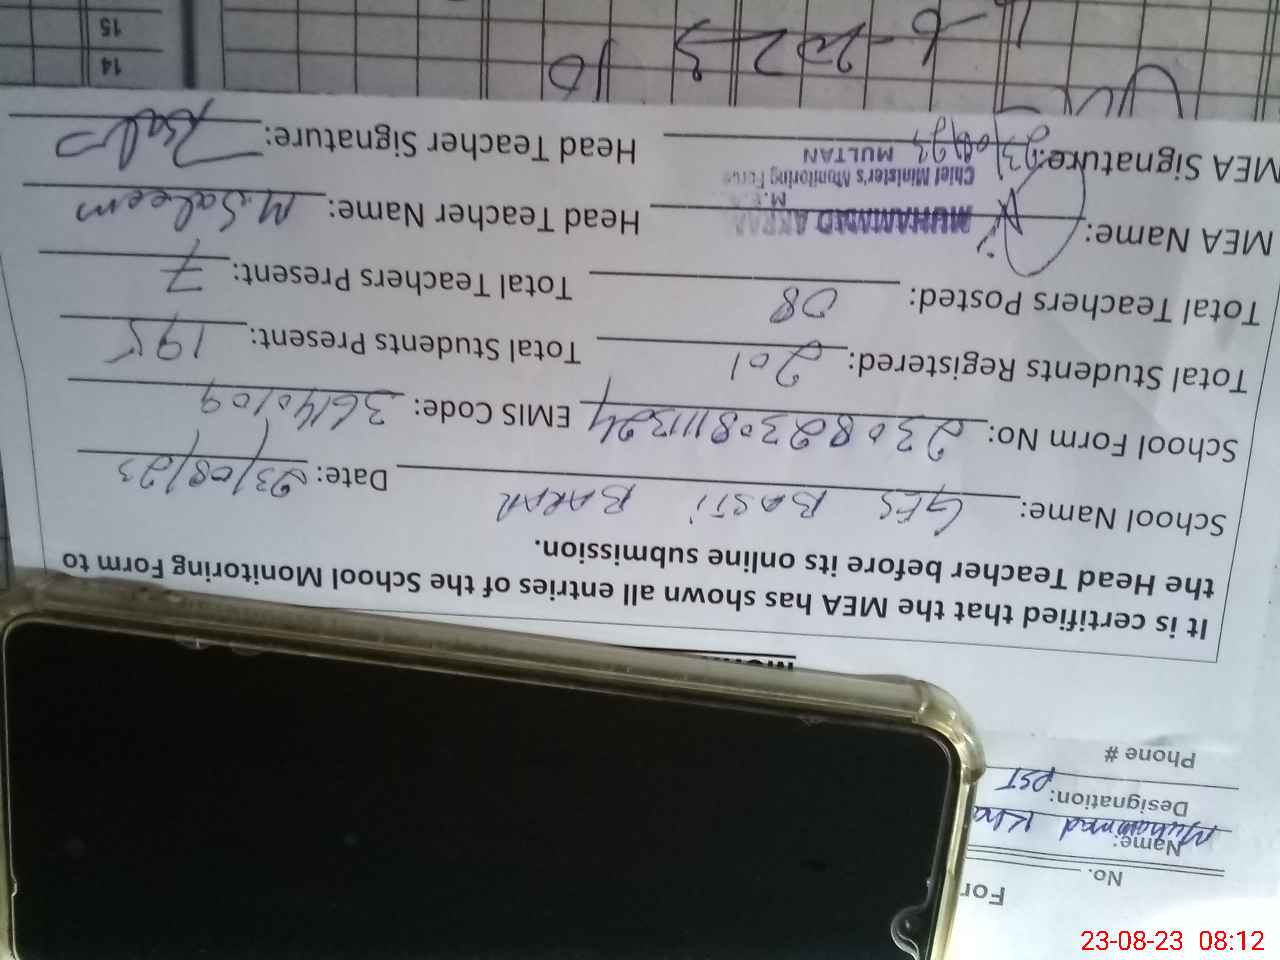 For
No.
Name: Muhammad
Designation: PST
Phone #
It is certified that the MEA has shown all entries of the School Monitoring Form to
the Head Teacher before its online submission.
School Name: GES BASTI BARAR Date: 23/08/23
School Form No: 23082308111324 EMIS Code: 36140109
Total Students Registered: 201 Total Students Present: 195
Total Teachers Posted: 08 Total Teachers Present: 7
MEA Name: MUHAMMAD AKRAM Head Teacher Name: M.Saleem
M.E.A
Chief Minister's Monitoring Force
MULTAN
MEA Signature: 23/08/23 Head Teacher Signature:
10
6-2023
14
15
23-08-23 08:12